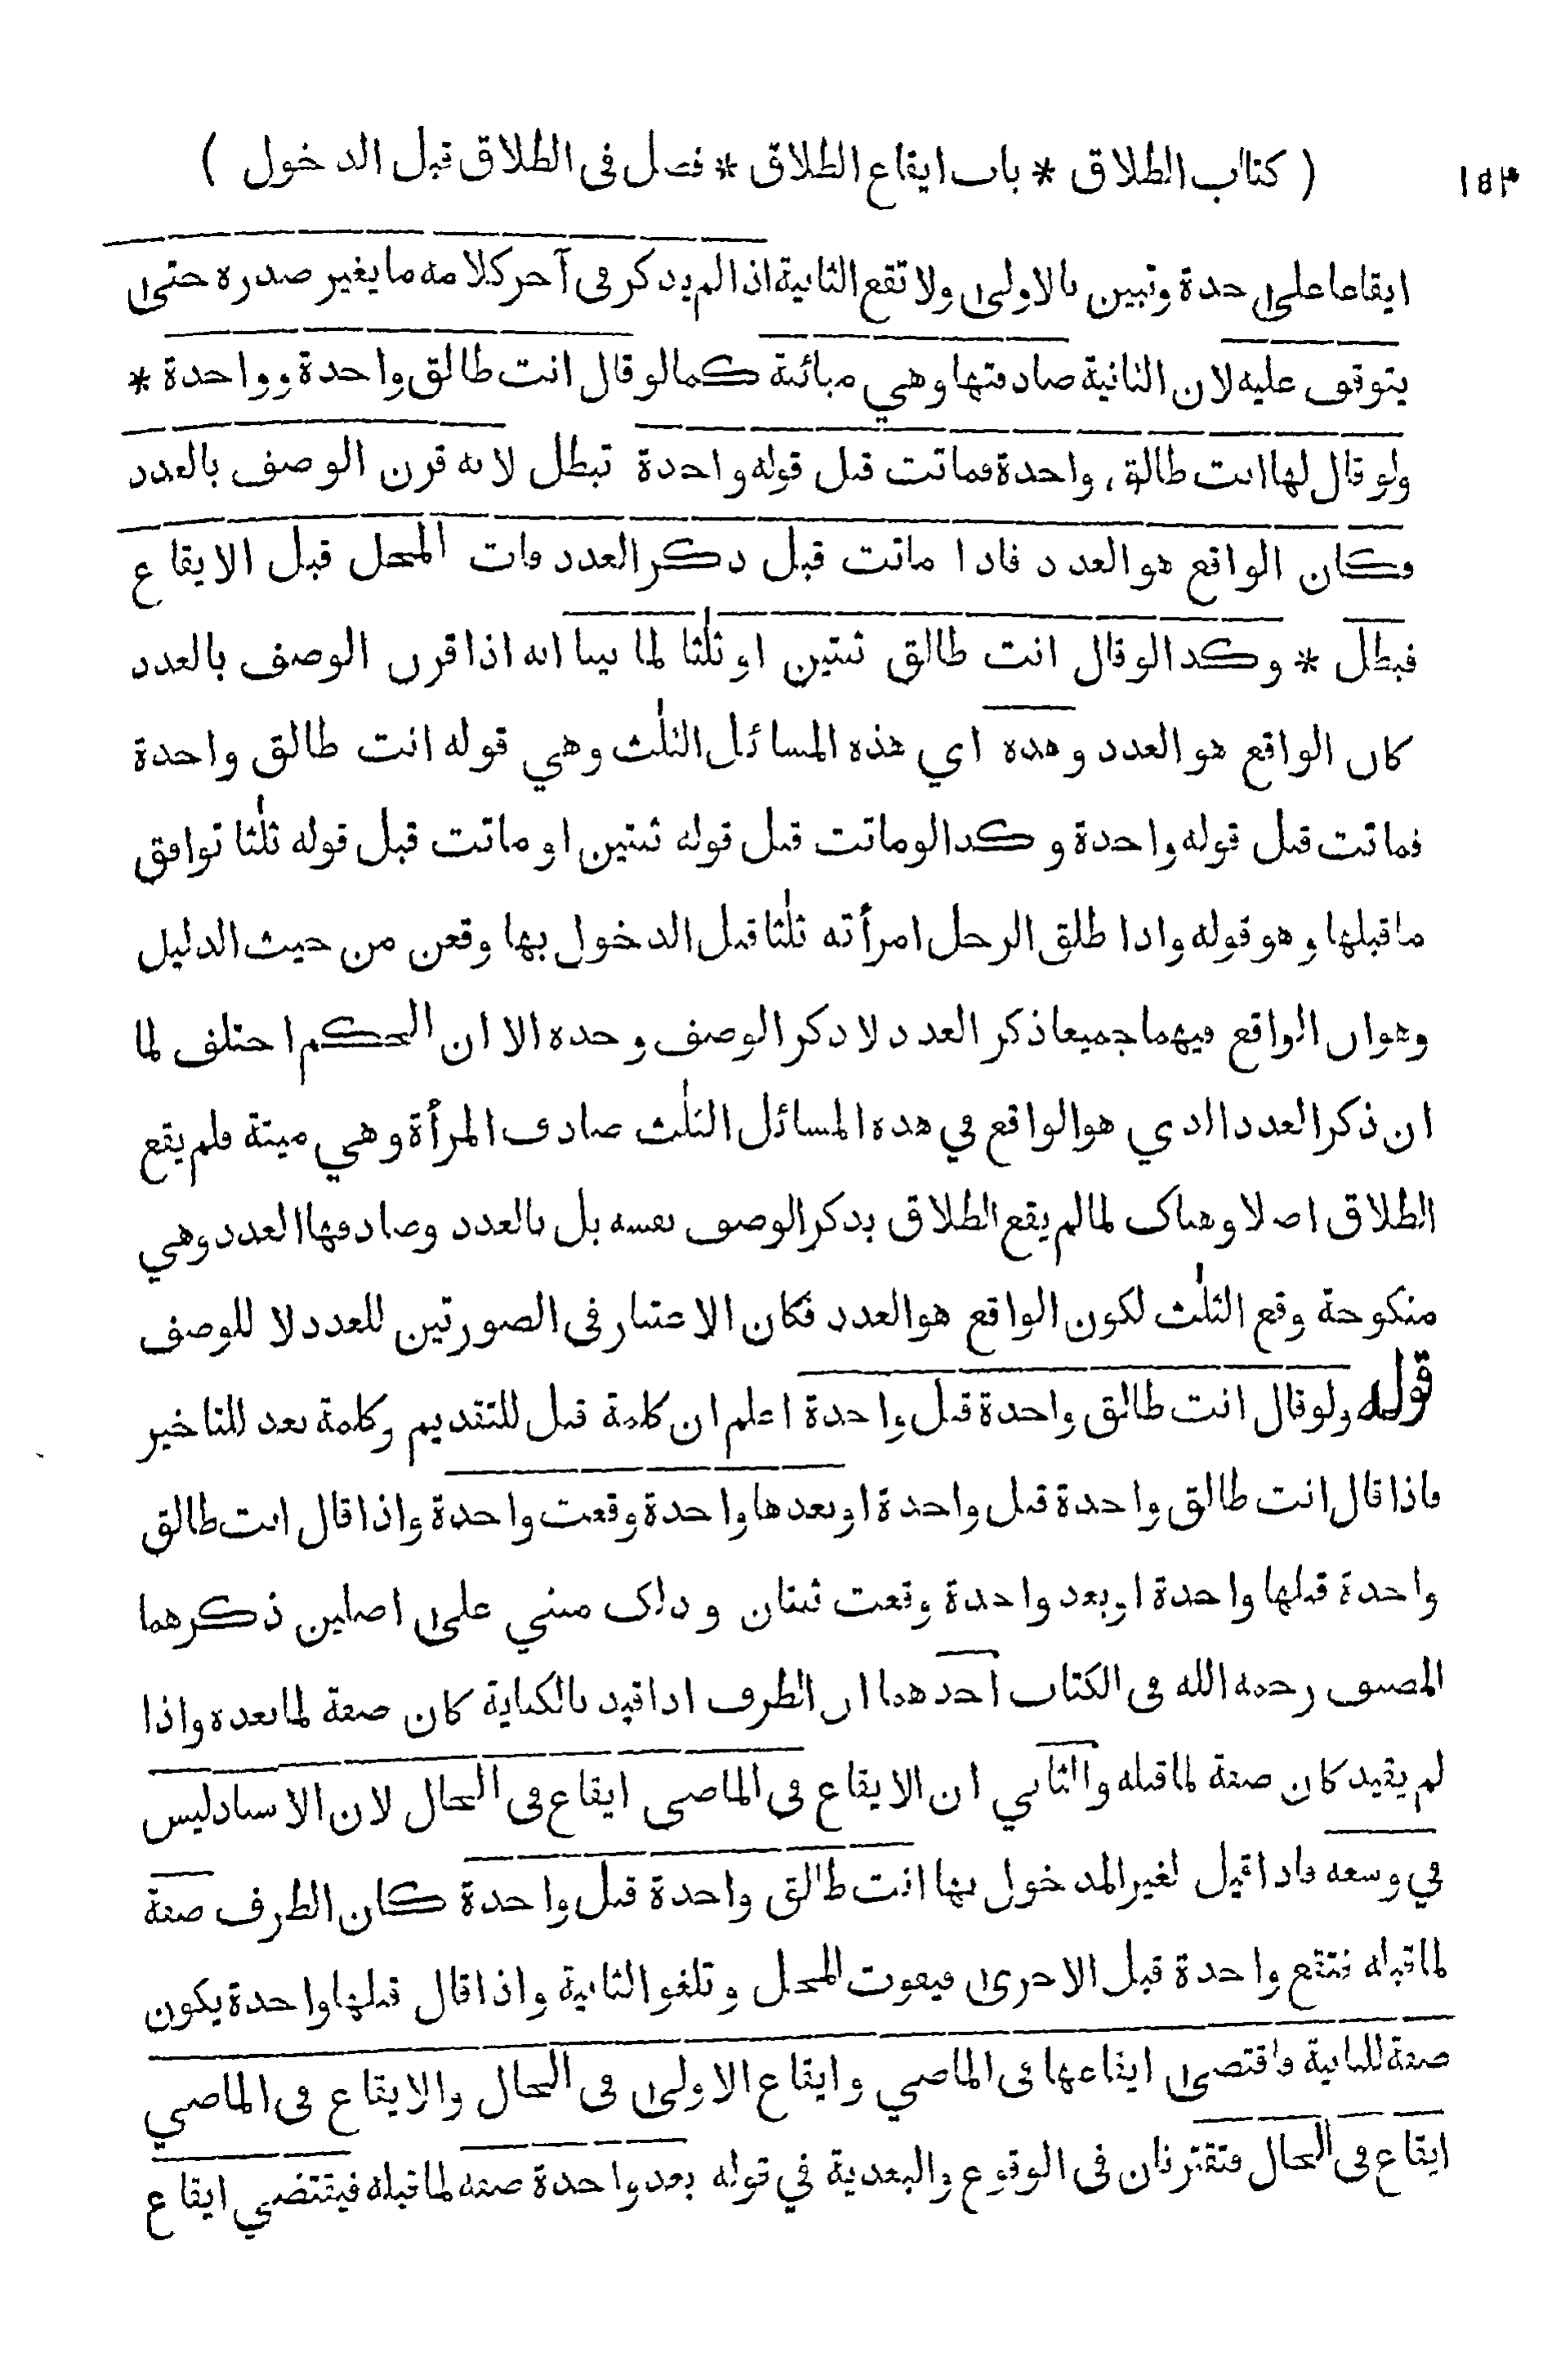 ( كتاب الطلاق * باب ايقاع الطلاق * فصل فى الطلاق قبل الدخول ) ١٥٣
ايقاعا على حدة وتبين بالاولى ولا تقع الثانية اذا لم يذكر فى آخر كلامه ما يغير صدره حتى
يتوقف عليه لان الثانية صادفتها وهي مبائنة كما لو قال انت طالق واحدة وواحدة *
ولو قال لها انت طالق واحدة فماتت قبل قوله واحدة تبطل لانه قرن الوصف بالعدد
فكان الواقع هو العدد فاذا ماتت قبل ذكر العدد فات المحل قبل الايقاع
فبطل * وكذا لو قال انت طالق ثنتين او ثلٰثا لما بينا انه اذا قرن الوصف بالعدد
كان الواقع هو العدد وهذه اي هذه المسائل الثلٰث وهي قوله انت طالق واحدة
فماتت قبل قوله واحدة وكذا لو ماتت قبل قوله ثنتين او ماتت قبل قوله ثلٰثا توافق
ما قبلها وهو قوله واذا طلق الرجل امرأته ثلٰثا قبل الدخول بها وقعن من حيث الدليل
وهو ان الواقع فيهما جميعا ذكر العدد لا ذكر الوصف وحده الا ان الحكم اختلف لما
ان ذكر العدد الذي هو الواقع في هذه المسائل الثلٰث صادف المرأة وهي ميتة فلم يقع
الطلاق اصلا وهناك لما لم يقع الطلاق بذكر الوصف نفسه بل بالعدد وصادفها العدد وهي
منكوحة وقع الثلٰث لكون الواقع هو العدد فكان الاعتبار فى الصورتين للعدد لا للوصف
قوله ولو قال انت طالق واحدة قبل واحدة اعلم ان كلمة قبل للتقديم وكلمة بعد للتاخير
فاذا قال انت طالق واحدة قبل واحدة او بعدها واحدة وقعت واحدة واذا قال انت طالق
واحدة قبلها واحدة او بعد واحدة وقعت ثنتان وذلك مبني على اصلين ذكرهما
المصنف رحمه الله فى الكتاب احدهما ان الظرف اذا قيد بالكناية كان صفة لما بعده واذا
لم يقيد كان صفة لما قبله والثاني ان الايقاع فى الماضى ايقاع فى الحال لان الاسناد ليس
في وسعه فاذا قيل لغير المدخول بها انت طالق واحدة قبل واحدة كان الظرف صفة
لما قبله فتقع واحدة قبل الاخرى فيفوت المحل وتلغو الثانية واذا قال قبلها واحدة يكون
صفة للثانية فاقتضى ايقاعها فى الماضي وايقاع الاولى فى الحال والايقاع فى الماضي
ايقاع فى الحال فتقترنان فى الوقوع والبعدية في قوله بعد واحدة صفة لما قبله فيقتضي ايقاع